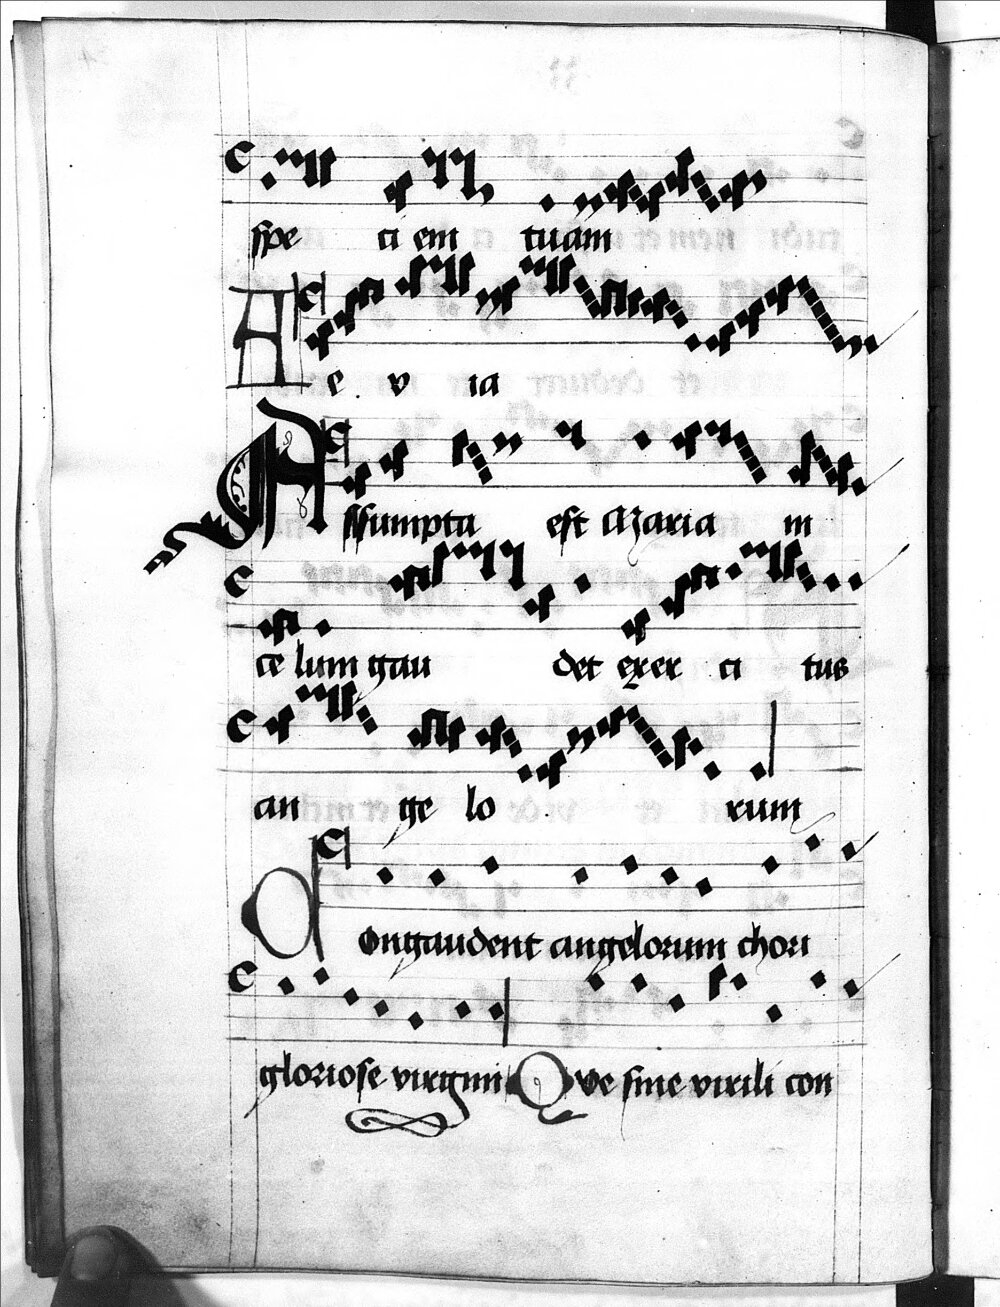 spe ci em tuam
A e v ia
Assumpta est Maria in
ce lum gau det exer ci tus
an ge lo rum
Congaudent angelorum chori
gloriose virgini Que sine virili con